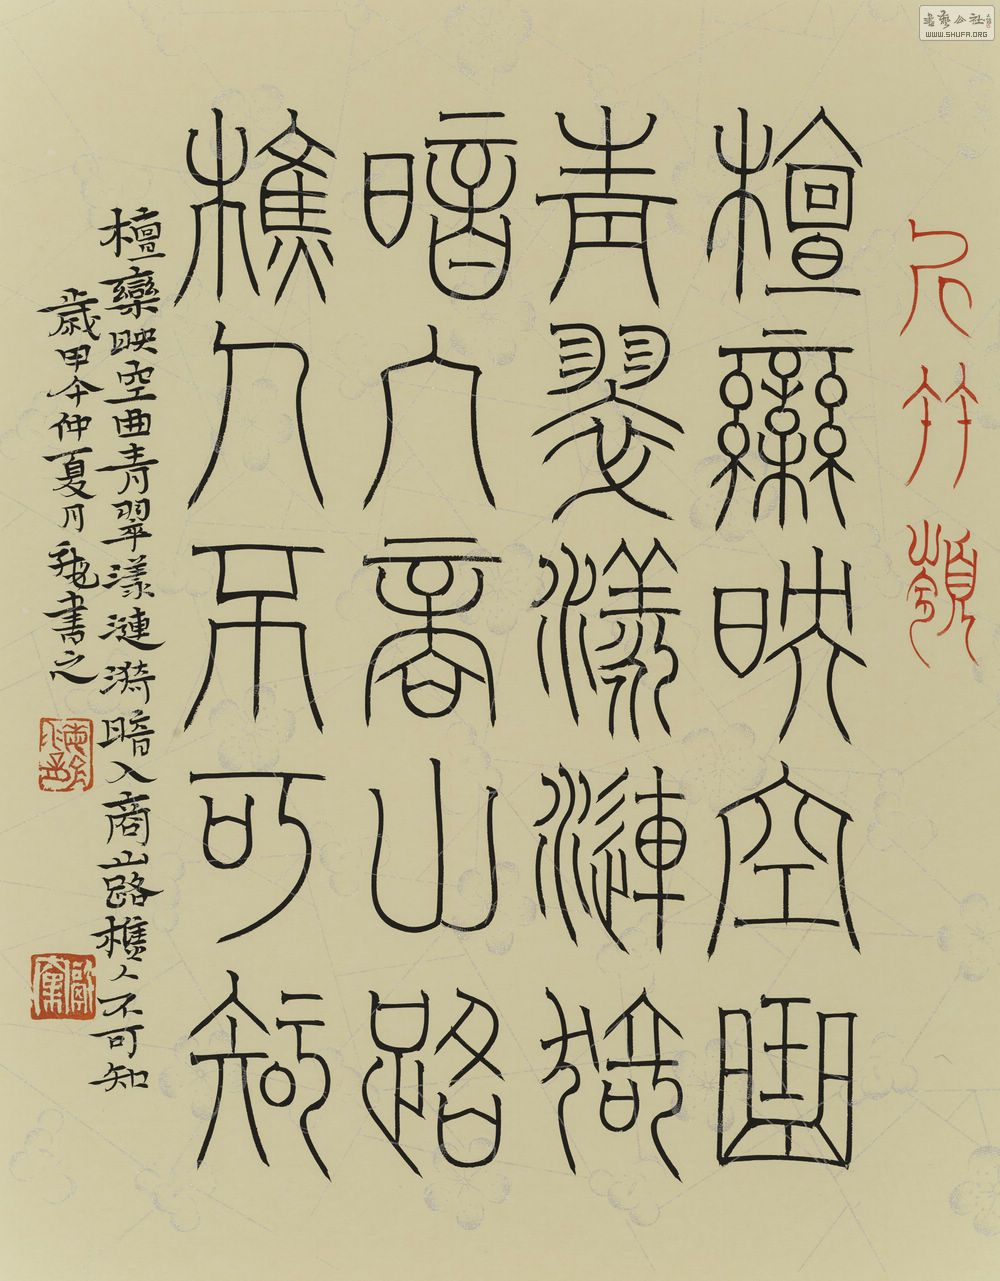 斤竹嶺
檀欒映空曲
青翠漾漣猗
暗入商山路
樵人不可知
檀欒映空曲青翠漾漣漪暗入商山路樵人不可知
歲甲午仲夏月書之
書藝公社
WWW.SHUFA.ORG